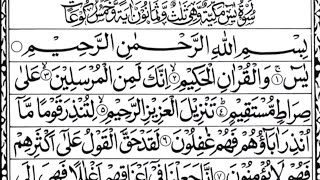 سورة يس مكية وهي ثلث وثمانون اية وخمس ركوعات
بِسْمِ اللهِ الرَّحْمٰنِ الرَّحِيْمِ
يٰسٓ ۝١ وَالْقُرْاٰنِ الْحَكِيْمِ ۝٢ اِنَّكَ لَمِنَ الْمُرْسَلِيْنَ ۝٣ عَلٰى
صِرَاطٍ مُّسْتَقِيْمٍ ۝٤ تَنْزِيْلَ الْعَزِيْزِ الرَّحِيْمِ ۝٥ لِتُنْذِرَ قَوْمًا مَّآ
اُنْذِرَ اٰبَآؤُهُمْ فَهُمْ غٰفِلُوْنَ ۝٦ لَقَدْ حَقَّ الْقَوْلُ عَلٰٓى اَكْثَرِهِمْ
فَهُمْ لَا يُؤْمِنُوْنَ ۝٧ اِنَّا جَعَلْنَا فِيْٓ اَعْنَاقِهِمْ اَغْلٰلًا فَهِيَ اِلَى